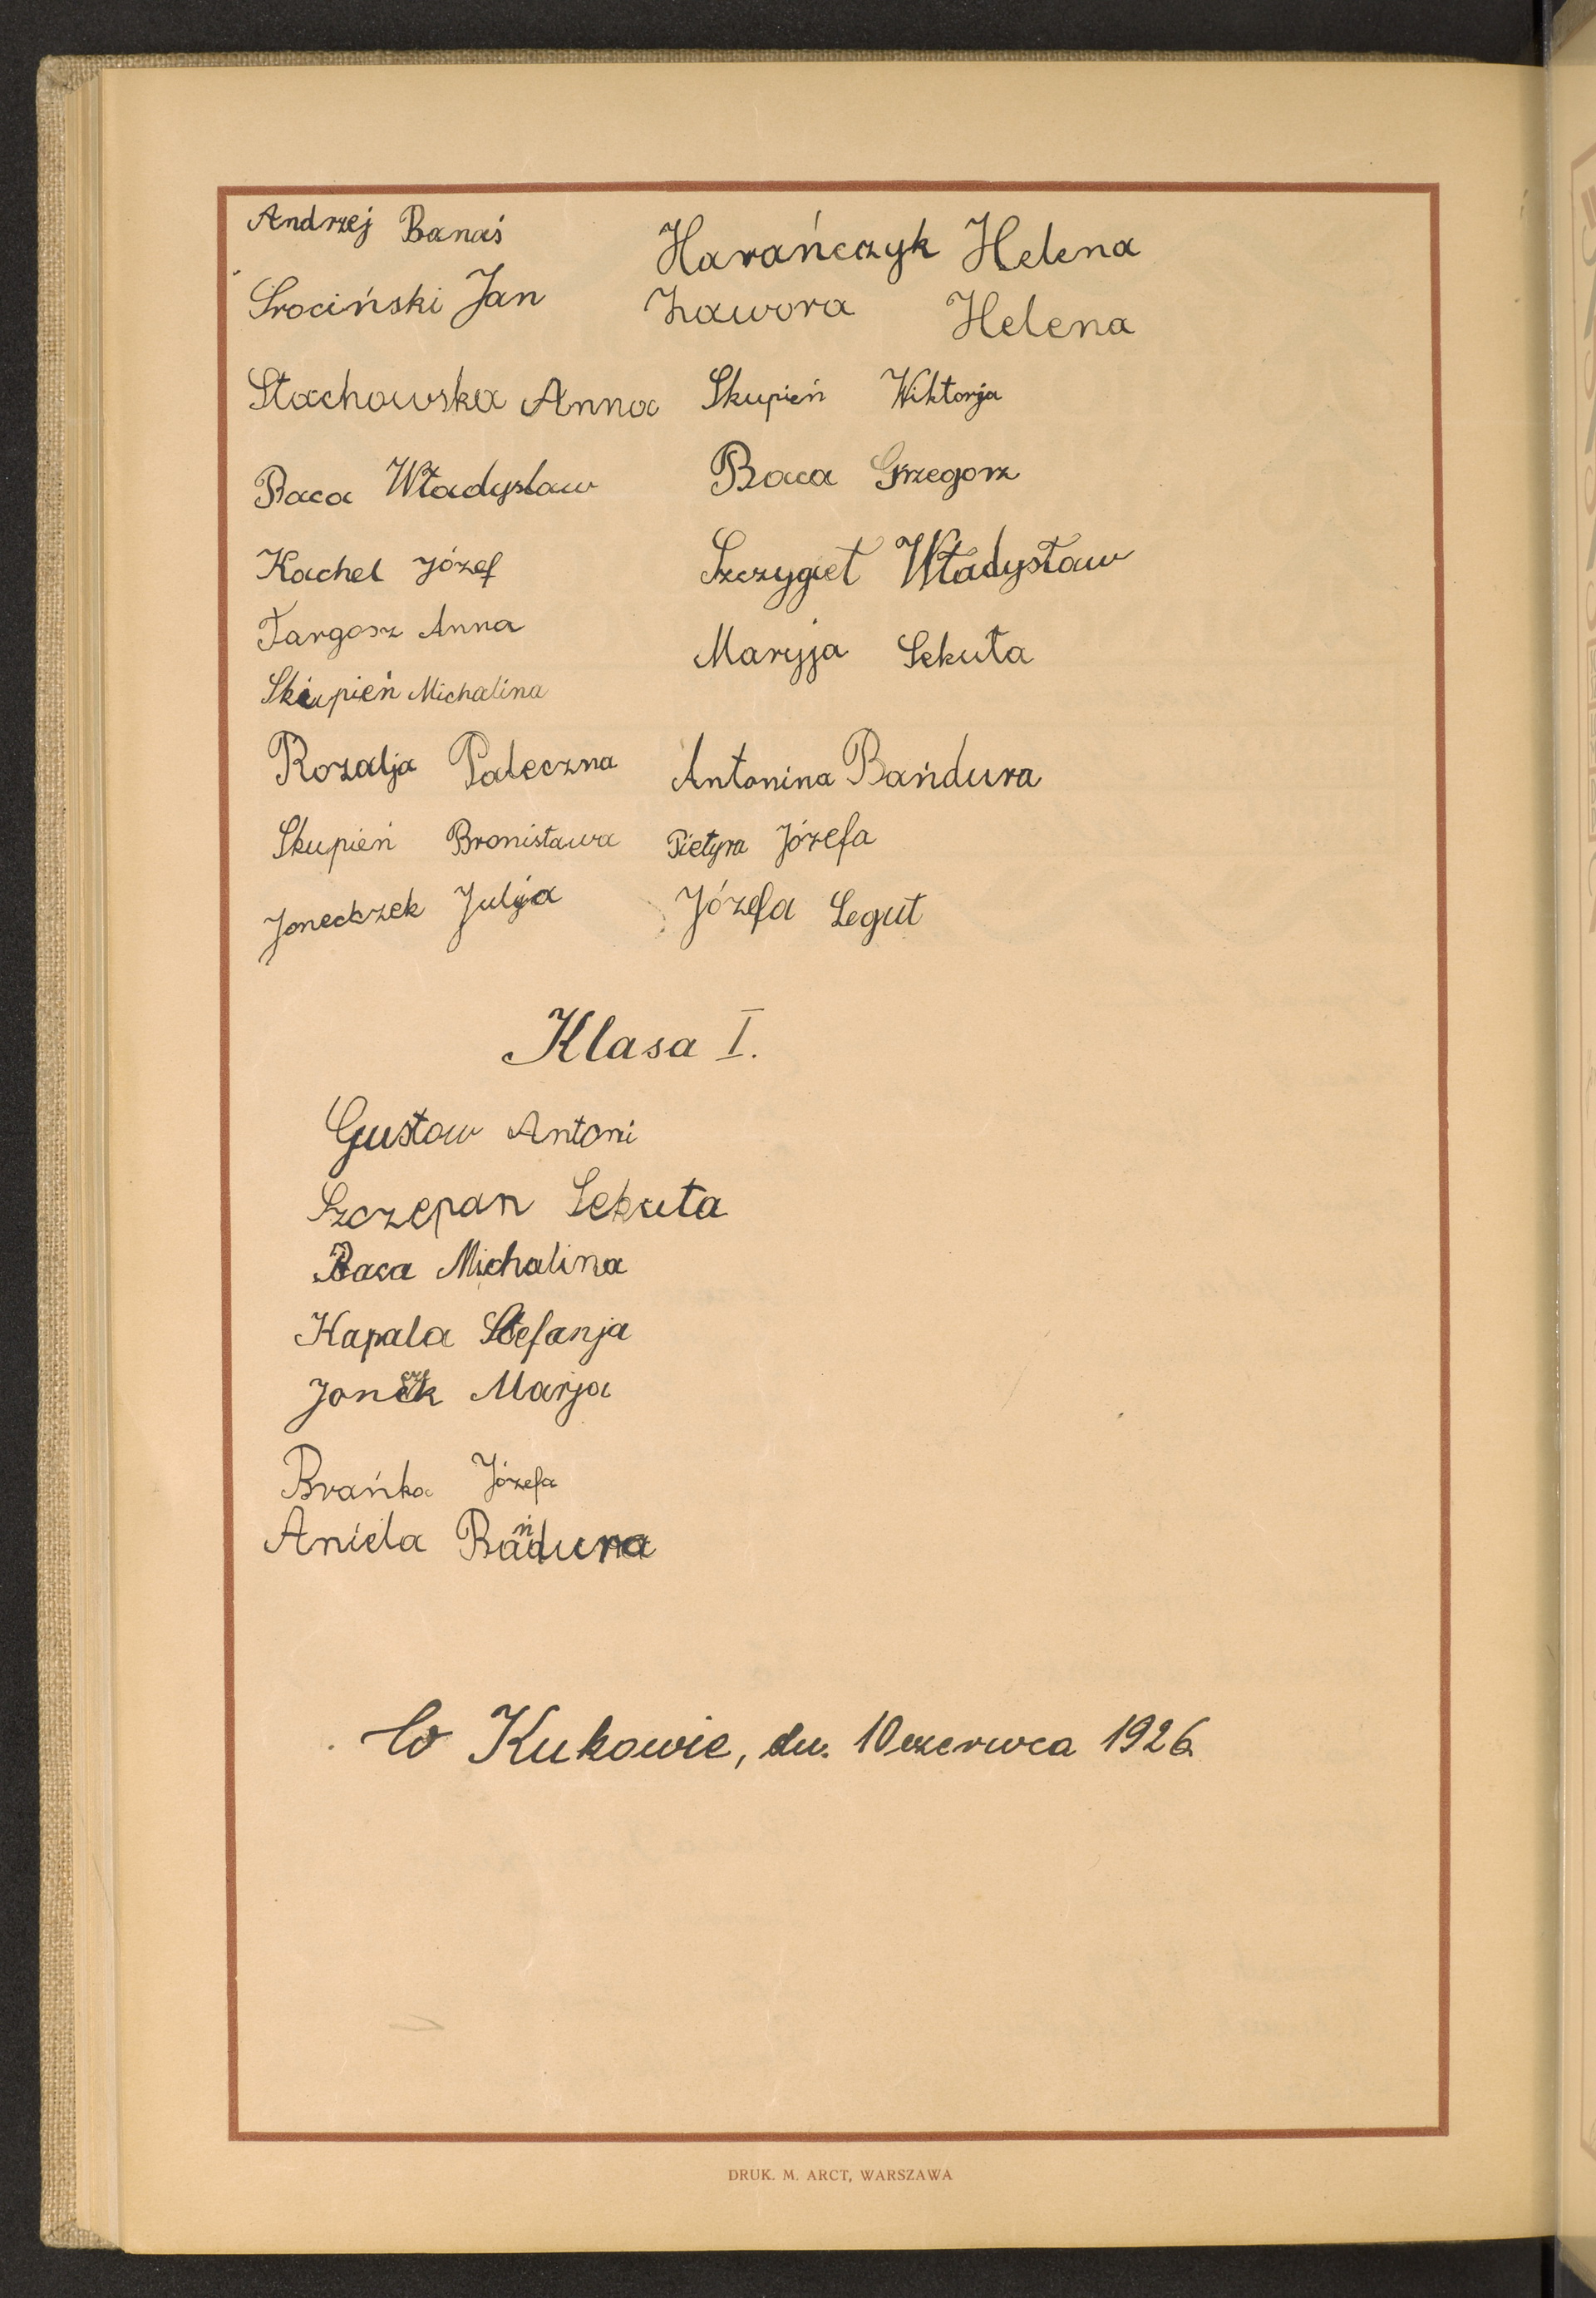 Andrzej Banaś
Srociński Jan
Stachowska Anna
Baca Władysław
Kachel Józef
Targosz Anna
Skupień Michalina
Rozalja Paleczna
Skupień Bronisława
Joneczek Julja
Harańczyk Helena
Zawora Helena
Skupień Wiktorja
Baca Grzegorz
Szczygieł Władysław
Maryja Sekuła
Antonina Bańdura
Pietyra Józefa
Józefa Legut
Klasa I.
Gustaw Antoni
Szczepan Sekuła
Baca Michalina
Kapala Stefanja
Marja
Brańka Józefa
Aniela Bańdura
W Kukowie, dn. 10 czerwca 1926
DRUK. M. ARCT, WARSZAWA